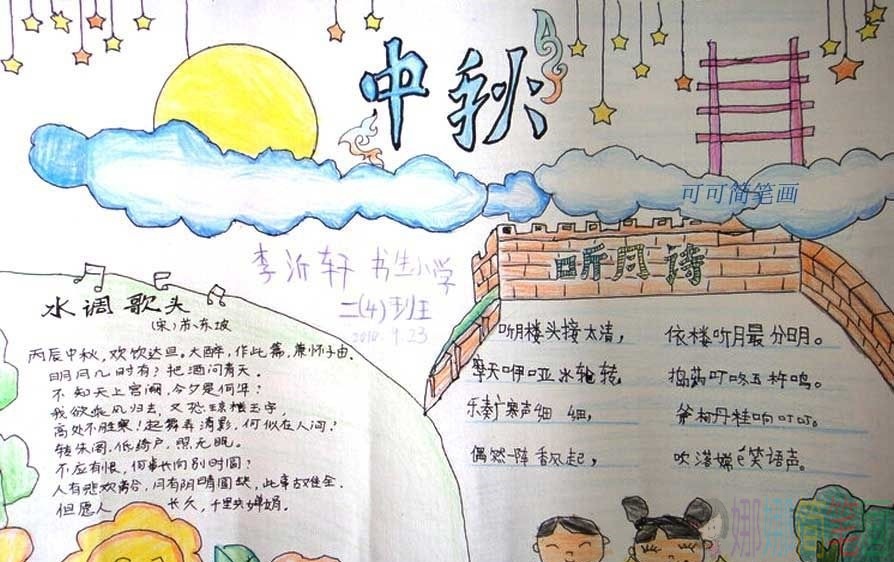 中秋
可可简笔画
听月诗
李沂轩 书生小学
二(4)班
2010.9.23
水调歌头
(宋)苏东坡
丙辰中秋,欢饮达旦。大醉,作此篇,兼怀子由。
明月几时有?把酒问青天。
不知天上宫阙,今夕是何年?
我欲乘风归去,又恐琼楼玉宇,
高处不胜寒!起舞弄清影,何似在人间?
转朱阁,低绮户,照无眠。
不应有恨,何事长向别时圆?
人有悲欢离合,月有阴晴圆缺,此事古难全。
但愿人 长久,千里共婵娟。
听月楼头接太清, 依楼听月最分明。
摩天咿哑冰轮转, 捣药叮咚玉杵鸣。
乐奏广寒声细细, 斧柯丹桂响叮叮。
偶然一阵香风起, 吹落嫦 笑语声。
娜